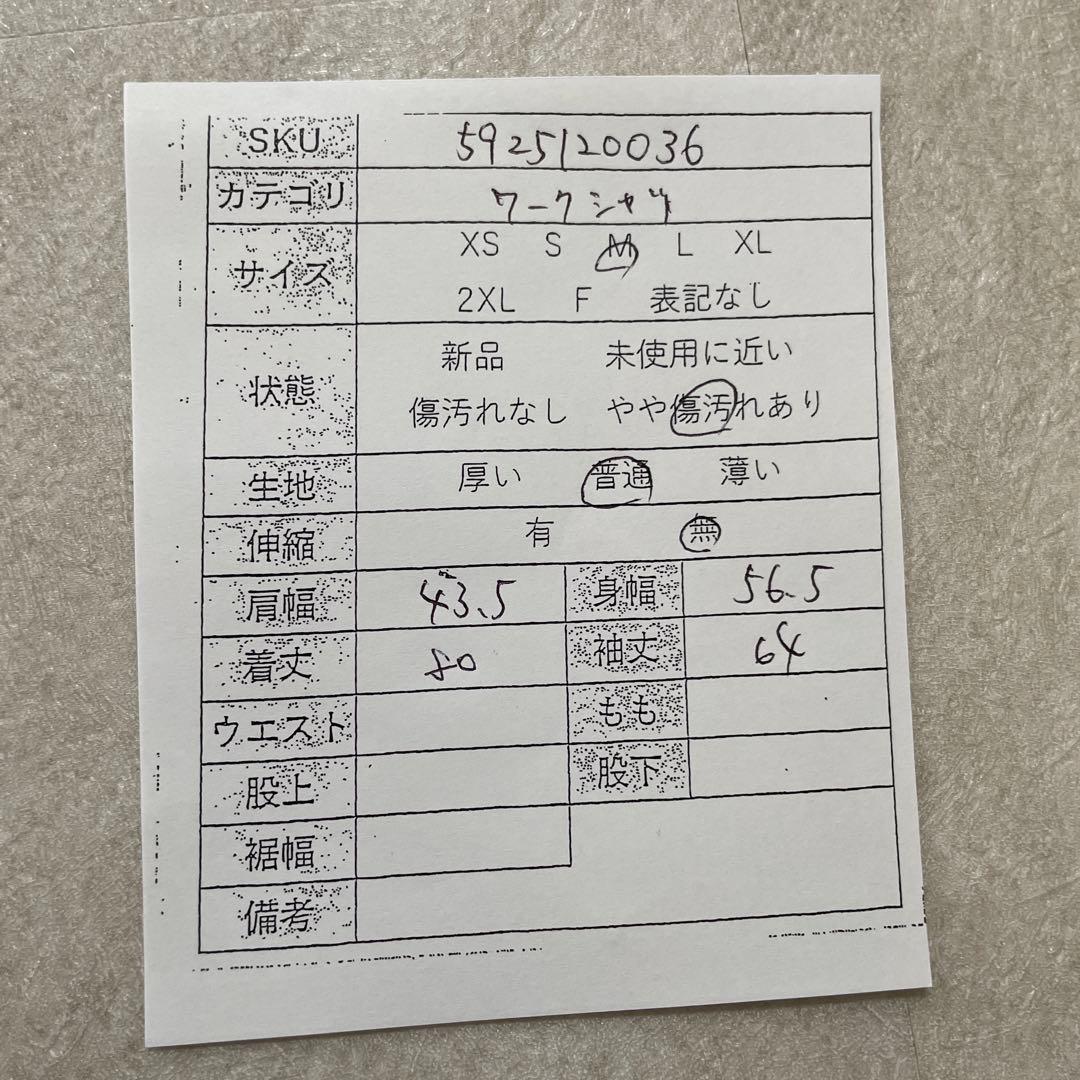 SKU 5925120036
カテゴリ ワークシャツ
サイズ XS S M L XL
2XL F 表記なし
状態 新品 未使用に近い
傷汚れなし やや傷汚れあり
生地 厚い 普通 薄い
伸縮 有 無
肩幅 43.5 身幅 56.5
着丈 80 袖丈 64
ウエスト もも
股上 股下
裾幅
備考